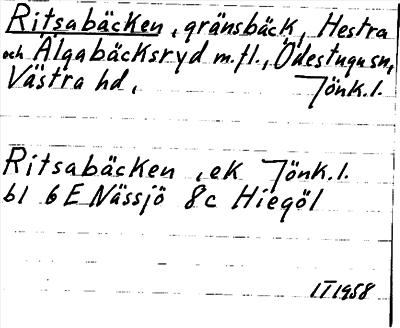 Ritsabäcken, gränsbäck, Hestra
och Älgabäcksryd m.fl., Ödestugu sn,
Västra hd, Jönk.l.
Ritsabäcken, ek Jönk.l.
bl 6E Nässjö 8c Hiegöl
II 1958